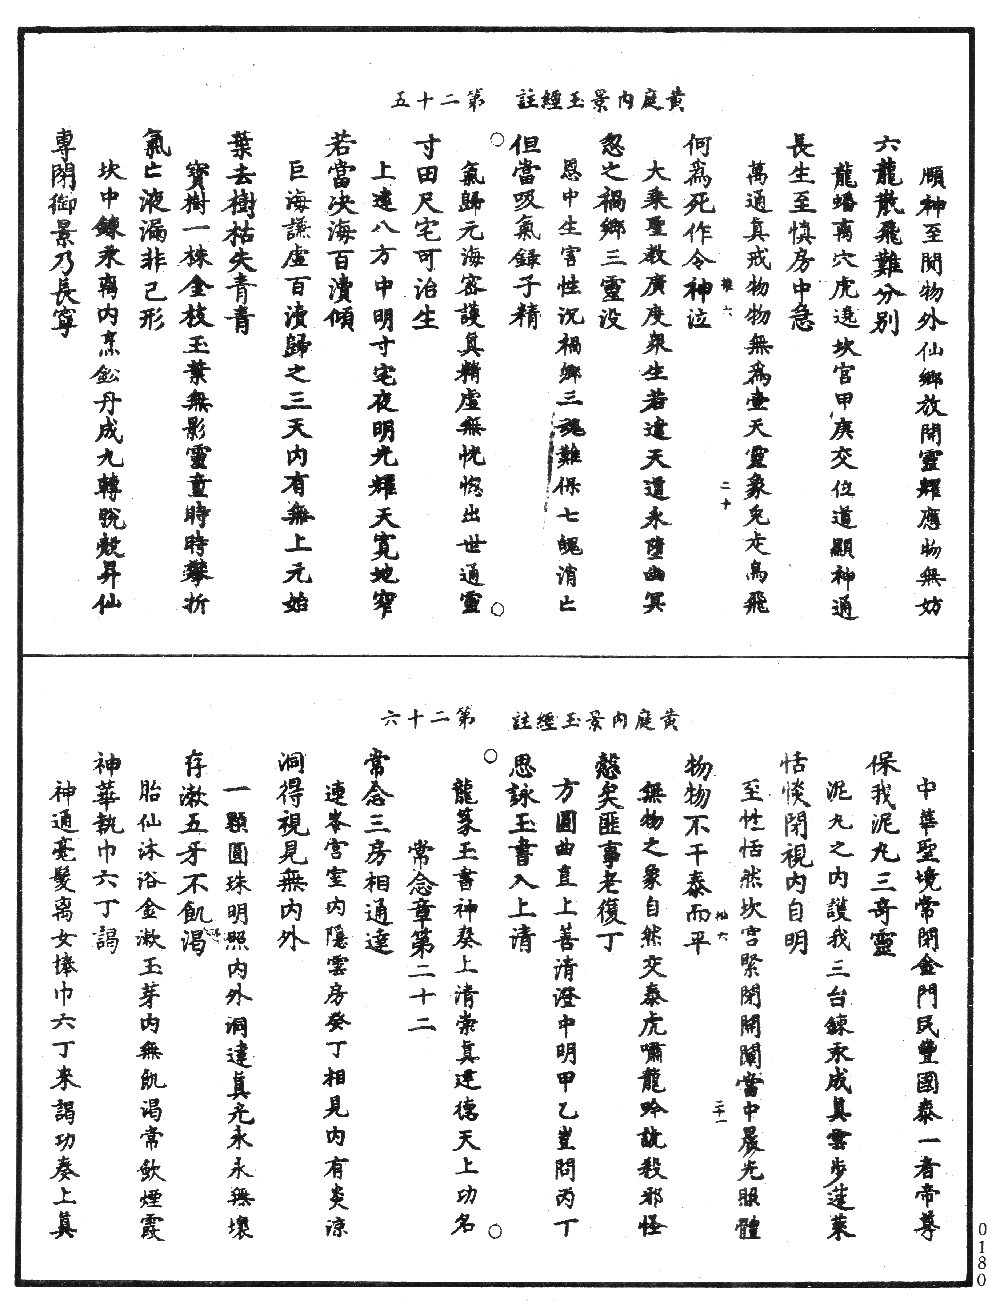 黃庭內景玉經註　第二十五
頤神至閑物外仙鄉放開靈耀應物無妨
六龍散飛難分別
龍蟠离穴虎遶坎宫甲庚交位道顯神通
長生至慎房中急
萬通真戒物物無為壷天靈象兔走烏飛
何為死作令神泣
大乘聖教廣度衆生若違天道永墮幽冥
忽之禍鄉三靈没
恩中生害性沉禍鄉三魂難保七魄消亡
但當吸氣録子精
氣歸元海密護真精虛無恍惚出世通靈
寸田尺宅可治生
上達八方中明寸宅夜明光耀天寬地窄
若當决海百瀆傾
巨海謙虛百瀆歸之三天内有無上元始
葉去樹枯失青青
寳樹一株金枝玉葉無影靈童時時攀折
氣亡液漏非己形
坎中鍊汞离内烹鈆丹成九轉脫殼昇仙
專閉御景乃長寧
二十
黃庭內景玉經註　第二十六
中華聖境常閉金門民豐國泰一者帝尊
保我泥丸三竒靈
泥丸之内護我三台鍊汞成真雲步蓬萊
恬惔閉視内自明
至性恬然坎宫緊閉開闡當中晨光照體
物物不干泰而平
無物之象自然交泰虎嘯龍吟誅殺邪怪
慤矣匪事老復丁
方圓曲直上善清澄中明甲乙豈問丙丁
思詠玉書入上清
龍篆玉書神發上清崇真建德天上功名
常念章第二十二
常念三房相通達
連峯宫室内隱雲房癸丁相見内有炎凉
洞得視見無内外
一顆圓珠明照内外洞達真光永永無壞
存漱五牙不飢渴
胎仙沐浴金漱玉芽内無飢渴常飲煙霞
神華執巾六丁謁
神通毫髮离女捧巾六丁来謁功奏上真
二十一
0180